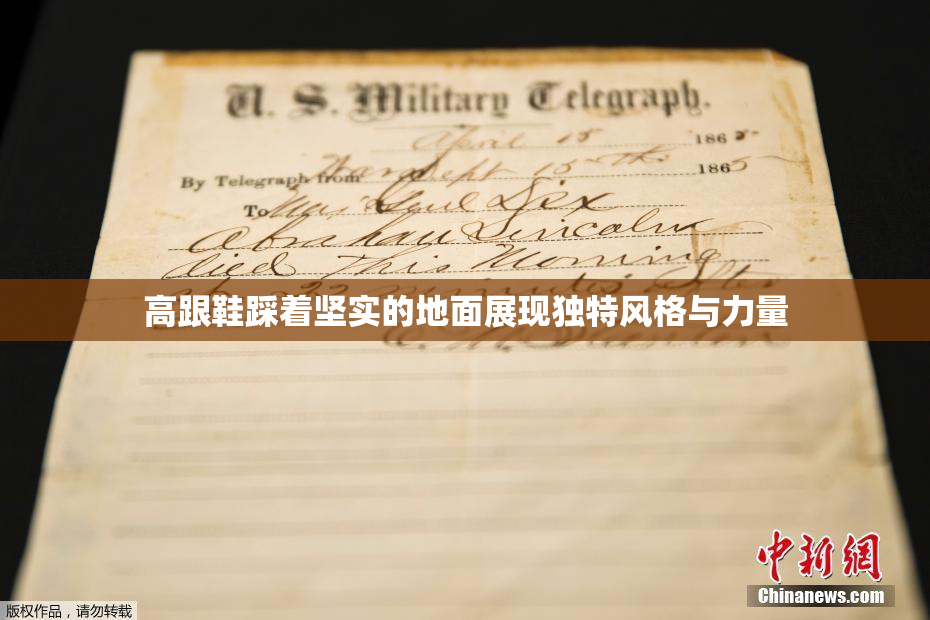 U. S. Military Telegraph.
April 15 1865
By Telegraph from War Dept 15th 1865
To Maj Genl Dix
Abraham Lincoln
died This Morning
at 22 minutes after
高跟鞋踩着坚实的地面展现独特风格与力量
中新網
Chinanews.com
版权作品，请勿转载